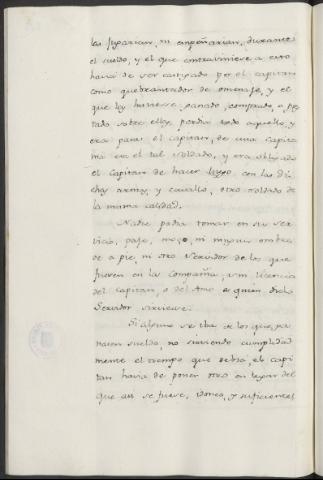 las jugarian, ni enpeñarian, durante
el sueldo, y el que contraviniese a esto
havia de ser castigado por el capitan
como quebrantador de omenaje, y el
que las huviese ganado, comprado, o pres
tado sobre ellas, perdia todo aquello, y
era para el capitan, de cuia capita
nia era el tal soldado, y era obligado
el capitan de hacer luego, con las di
chas armas, y cavallo, otro soldado de
la misma calidad.
Nadie podia tomar en su ser
vicio, paje, mozo, ni ningun ombre
de a pie, ni otro servidor de los que
fuesen en la compañia, sin licencia
del capitan, o del Amo a quien dicho
servidor sirviese.
Si alguno se iba de los que ga
nasen sueldo, no sirviendo cumplida
mente el tiempo que debia, el capi
tan havia de poner otro en lugar del
que asi se fuese, idoneo, y suficiente,